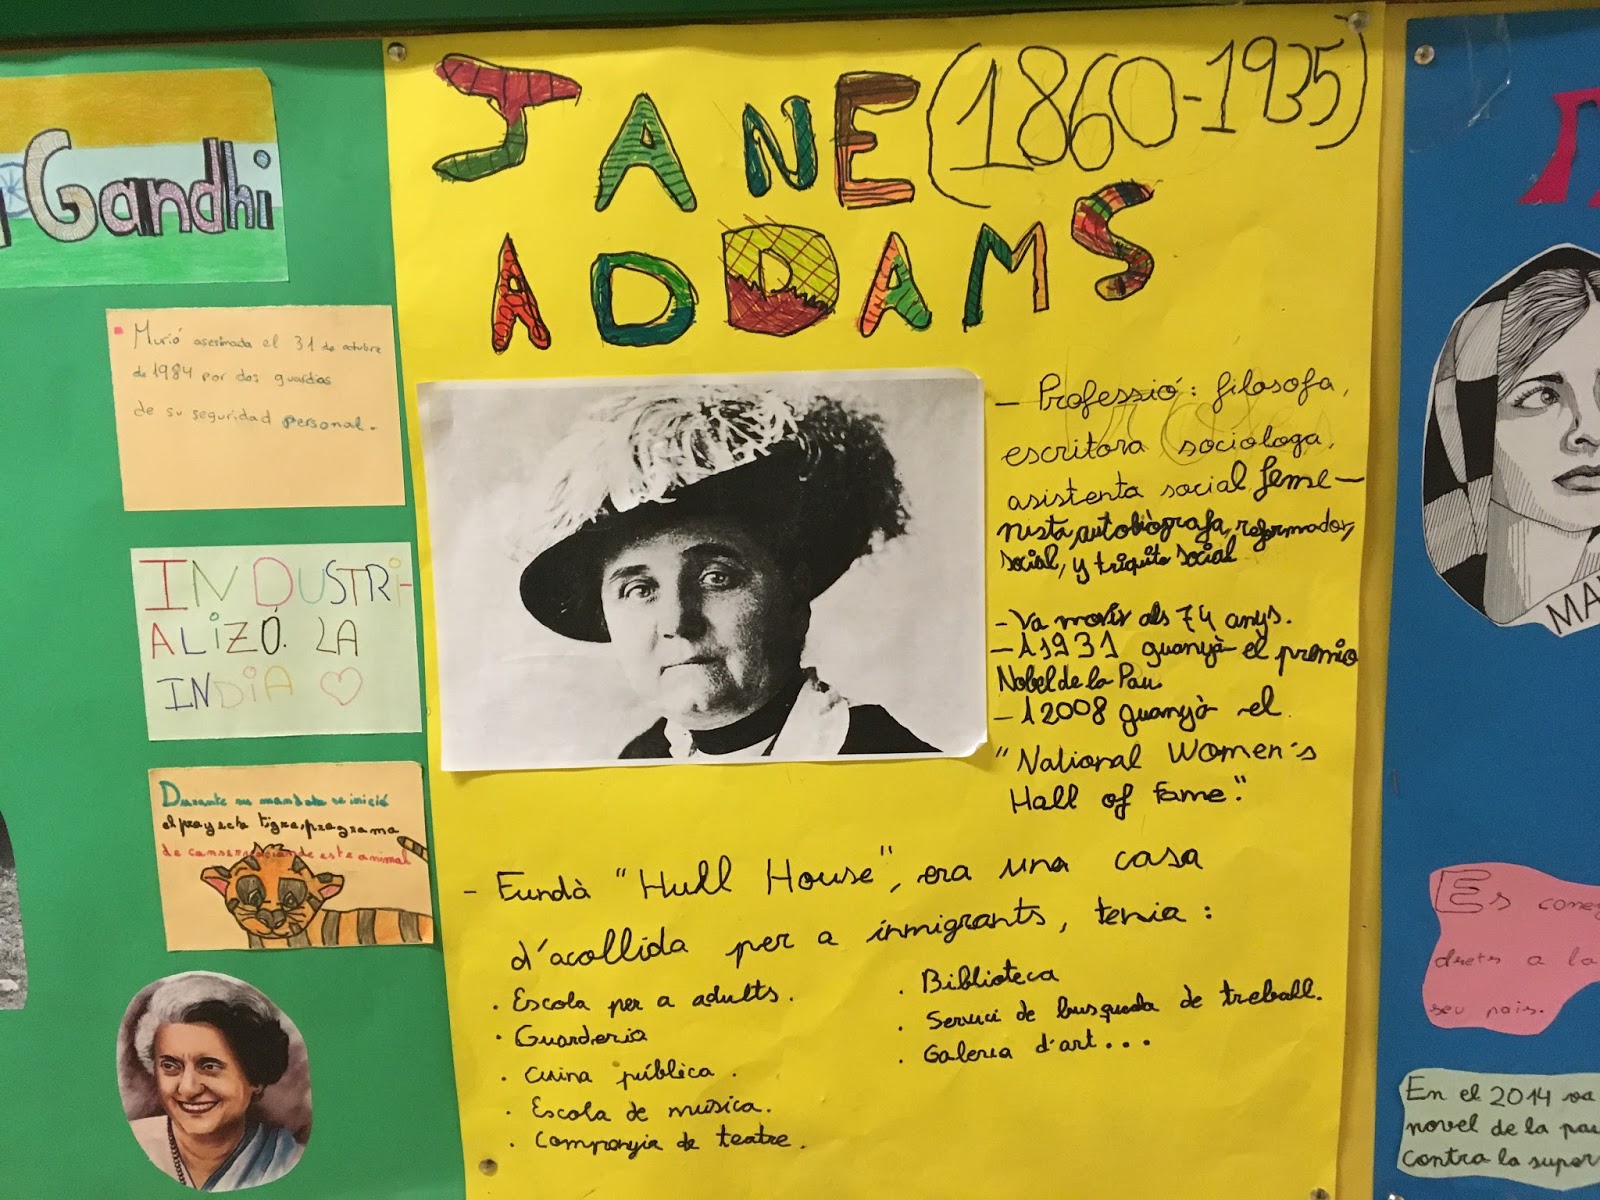 Gandhi
Murió asesinada el 31 de octubre
de 1984 por dos guardias
de su seguridad personal.
INDUSTRI-
ALIZÓ. LA
INDIA
Durante su mandato se inició
el proyecto tigre, programa
de conservación de este animal
JANE (1860-1935)
ADDAMS
- Professió: filosofa,
escritora sociologa,
asistenta social feme-
nista, autobiògrafa, reformador,
social, y
social
- Va morir als 74 anys.
- A 1931 guanyà el premio
Nobel de la Pau.
- A 2008 guanyà el
"National Women's
Hall of Fame".
- Fundà "Hull House", era una casa
d'acollida per a inmigrants, tenia:
· Escola per a adults.
· Guarderia
· Cuina pública.
· Escola de musica.
· Companyia de teatre.
· Biblioteca
· Servici de busqueda de treball.
· Galeria d'art...
MA
Es
drets a la
seu pais.
En el 2014 va
novel de la pau
contra la super